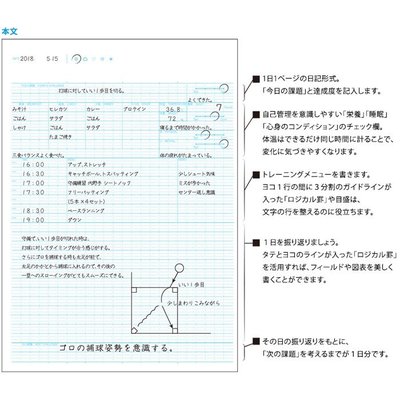 本文
2018 5/15
打球に対していい1歩目を切る。
よくできた。
みそ汁 ヒレカツ カレー プロテイン 36.8 7
ごはん サラダ ごはん 72
しゃけ ごはん サラダ 寝るまで時間がかかった。
たまご焼き
三食バランスよく食べた。 体の疲れがたまっている。
16:00 アップ、ストレッチ
16:30 キャッチボール、トスバッティング 少しシュート気味
17:00 守備練習 内野き シートノック ミスが少なかった
17:30 フリーバッティング センター返し意識
(5本×4セット)
18:30 ベースランニング
19:30 ダウン
守備で、いい1歩目が切れた時は、
打球に対してタイミングが合う感じがする。
さらにゴロを捕球する時も左足が前で、
左足のかかとから捕球に入れるので、その後の
一塁へのスローイングがとてもスムーズにできる。
少しまわりこみながら
ゴロの捕球姿勢を意識する。
■1日1ページの日記形式。
「今日の課題」と達成度を記入します。
■自己管理を意識しやすい「栄養」「睡眠」
「心身のコンディション」のチェック欄。
体温はできるだけ同じ時間に計ることで、
変化に気づきやすくなります。
■トレーニングメニューを書きます。
ヨコ1行の間に3分割のガイドラインが
入った「ロジカル罫」や目盛は、
文字の行を整えるのに役立ちます。
■1日を振り返りましょう。
タテとヨコのラインが入った「ロジカル罫」
を活用すれば、フィールドや図表を美しく
書くことができます。
■その日の振り返りをもとに、
「次の課題」を考えるまでが1日分です。